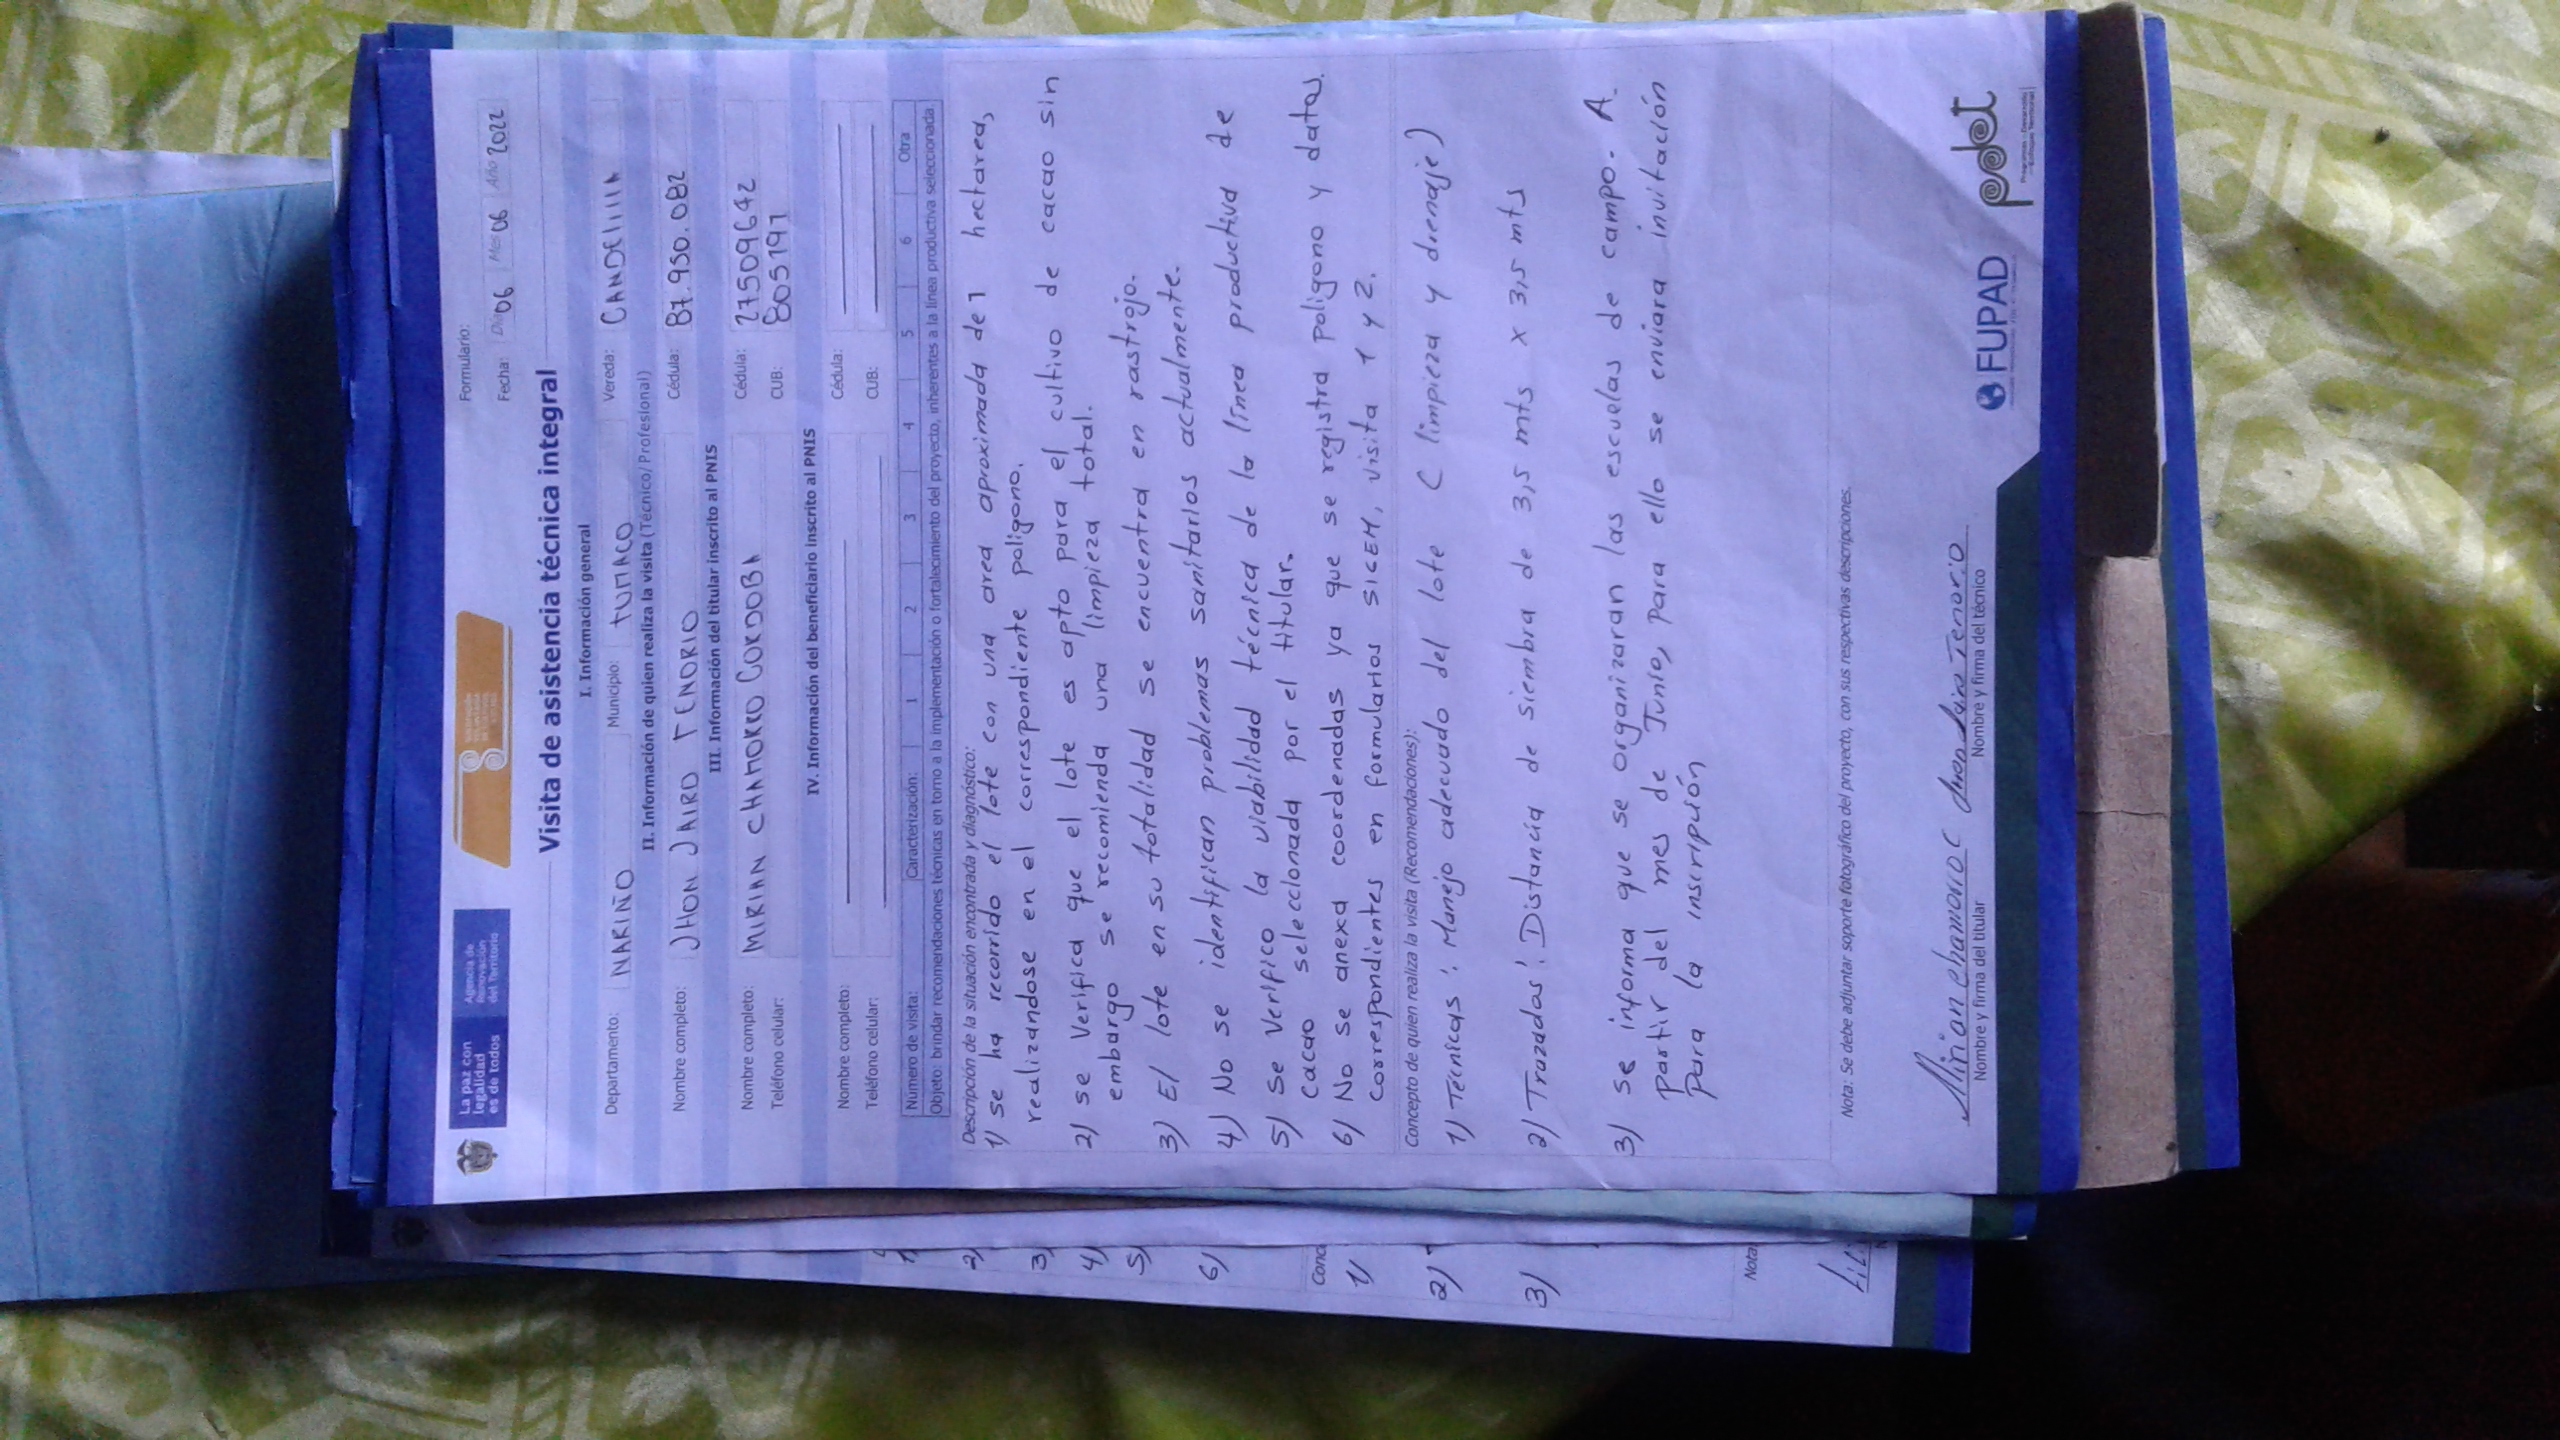 La paz con
legalidad
es de todos
Agencia de
Renovación
del Territorio
Formulario:
Fecha: Día 06 Mes 06 Año 2022
Visita de asistencia técnica integral
I. Información general
Departamento: NARIÑO Municipio: tUMACO Vereda: CANDElIllA
II. Información de quien realiza la visita (Técnico/ Profesional)
Nombre completo: JHON JAIRO TENORIO Cédula: 87.950.082
III. Información del titular inscrito al PNIS
Nombre completo: MIRIAN CHAMORRO CORDOBA Cédula: 27509642
Teléfono celular: CUB: 805197
IV. Información del beneficiario inscrito al PNIS
Nombre completo: Cédula:
Teléfono celular: CUB:
Número de visita: Caracterización: 1 2 3 4 5 6 Otra
Objeto: brindar recomendaciones técnicas en torno a la implementación o fortalecimiento del proyecto, inherentes a la línea productiva seleccionada.
Descripción de la situación encontrada y diagnóstico:
1) se ha recorrido el lote con una area aproximada de 1 hectarea,
realizandose en el correspondiente poligono.
2) se Verifica que el lote es apto para el cultivo de cacao sin
embargo se recomienda una limpieza total.
3) El lote en su totalidad se encuentra en rastrojo.
4) No se identifican problemas sanitarios actualmente.
5) Se Verifico la viabilidad técnica de la línea productiva de
cacao seleccionada por el titular.
6) No se anexa coordenadas ya que se registra poligono y datos
correspondientes en formularios SIGEM, visita 1 y 2.
Concepto de quien realiza la visita (Recomendaciones):
1) Técnicas: Manejo adecuado del lote ( limpieza y drenaje)
2) Trazados: Distancia de siembra de 3,5 mts x 3,5 mts
3) se informa que se organizaran las escuelas de campo. A
partir del mes de Junio, para ello se enviara invitación
para la inscripción
Nota: Se debe adjuntar soporte fotográfico del proyecto, con sus respectivas descripciones.
Mirian chamorro C Jhon Jairo Tenorio
Nombre y firma del titular Nombre y firma del técnico
FUPAD
pdet
Programas de Desarrollo
con Enfoque Territorial
2)
3)
4)
5)
6)
Conc
1)
2)
3)
Nota: